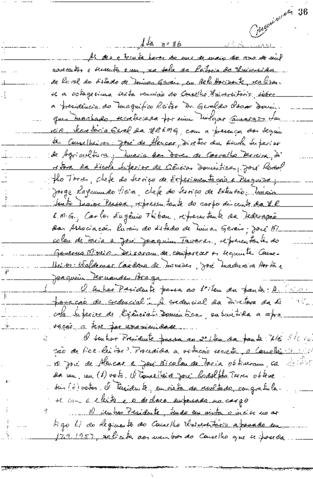 36
Ata nº 86
Às dez e trinta horas do um de maio do ano de mil
novecentos e sessenta e um, na sala da Reitoria da Universidade
de Rural do Estado de Minas Gerais, em Belo Horizonte, realizou-
se a octogésima sexta reunião do Conselho Universitário, sob
a presidência do Magnífico Reitor Dr. Geraldo Oscar Domin-
gues Machado, secretariada por mim
Secretária Geral da UREMG, com a presença dos seguin-
tes Conselheiros: José de Alencar, diretor da Escola Superior
de Agricultura; Maria das Dores de Carvalho Ferreira, di-
retora da Escola Superior de Ciências Domésticas; José Rodol-
pho Torres, chefe do Serviço de Experimentação e Pesquisa;
Jorge Raymundo, chefe do Serviço de Extensão;
representante do corpo discente da U.R.
E.M.G., Carlos Eugênio Thibau, representante da Federação
das Associações Rurais do Estado de Minas Gerais; José Ni-
colau de Faria e José Joaquim Tavares, representantes do
Governo. Deixaram de comparecer os seguintes Conse-
lheiros: Waldemar Cardoso de Menezes, José Madureira Horta e
Joaquim Fernandes Braga.
O Senhor Presidente passa ao 1º item da pauta: A
provação de credencial. A credencial da Diretora da Es-
cola Superior de Ciências Domésticas, submetida a apro-
vação, a teve por unanimidade.
O Senhor Presidente passa ao 2º item da pauta: Elei
ção de Vice-Reitor. Procedida a votação secreta, o Conselheiro
José de Alencar e José Nicolau de Faria obtiveram, ca-
da um, um (1) voto. O Conselheiro José Rodolpho Torres obteve
seis (6) votos. O Presidente, em vista do resultado, congratula-
se com o eleito e o declara empossado no cargo
O Senhor Presidente, tendo em vista o inciso no ar
tigo 61 do Regimento do Conselho Universitário aprovado em
17.9.1957, solicita aos membros do Conselho que se proceda